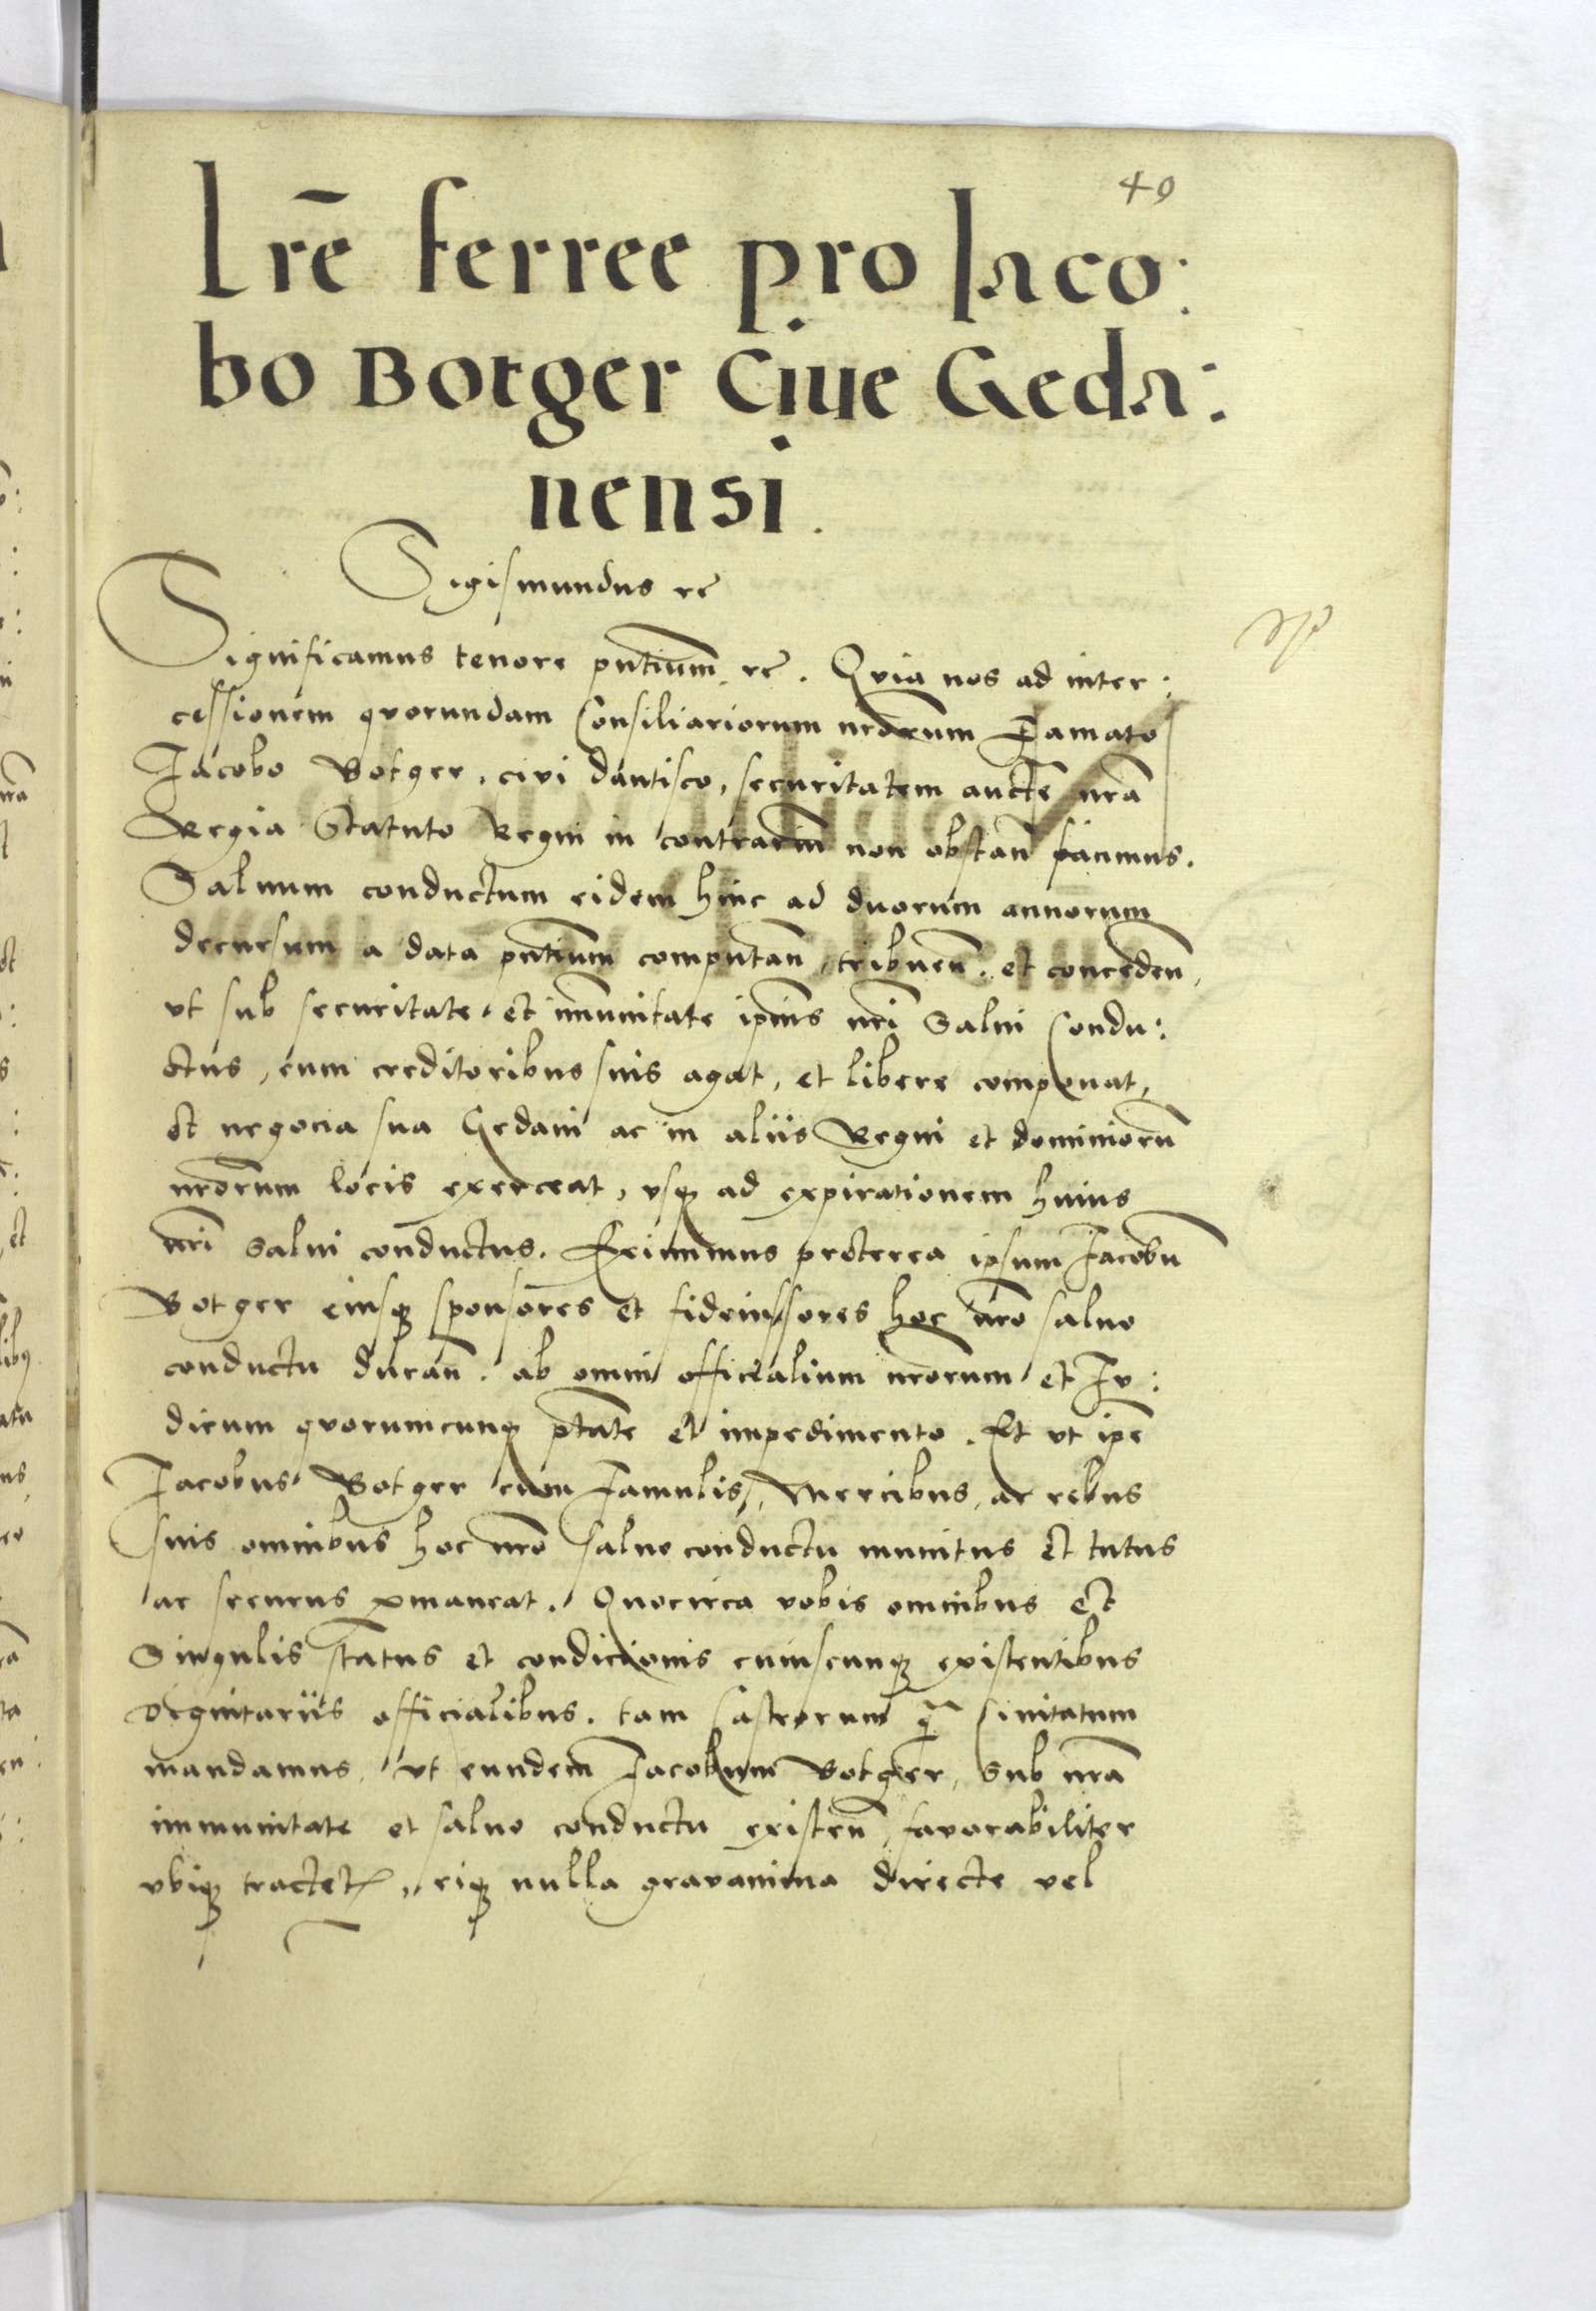 49
Lrē ferree pro Jaco:
bo Botger Ciue Geda:
nensi.
Sigismundus rc̄
Significamus tenore pn̄tium rc̄. Qvia nos ad inter:
cessionem qvorundam Consiliariorum nr̄orum Famato
Jacobo Botger, civi dantisco, securitatem auctē nrā
Regia Statuto Regni in contrarium non obstan̄
Salvum conductum eidem hinc ad duorum annorum
decursum a data pn̄tium computan̄, tribuen̄. et conceden̄,
vt sub securitate et im̄unitate ip̄ius nr̄i Salvi Condu:
ctus, cum creditoribus suis agat, et libere componat,
et negocia sua Gedani ac in aliis Regni et dominiorū
nr̄orum locis exerceat, vsq; ad expirationem huius
nr̄i Salvi conductus. Eximimus preterea ipsum Jacobū
Botger eiusq; sponsores et fideiussores hoc nr̄o salvo
conductu duran̄. ab omni officialium nr̄orum et Iu:
dicum qvorumcunq; ptāte et impedimento. Et vt ip̄e
Jacobus Botger cum Famulis, Mercibus, ac rebus
suis omnibus hoc nr̄o salvo conductu munitus et tutus
ac securus ꝑmaneat. Quocirca vobis omnibus et
Singulis status et condicionis cuiuscunq; existentibus
dignitariis officialibus. tam Castrorum q̄ Civitatum
mandamus, vt eundem Jacobum Botger, Sub nrā
immunitate et salvo conductu existen̄, favorabiliter
vbiq; tractet, eiq; nulla gravamina directe vel